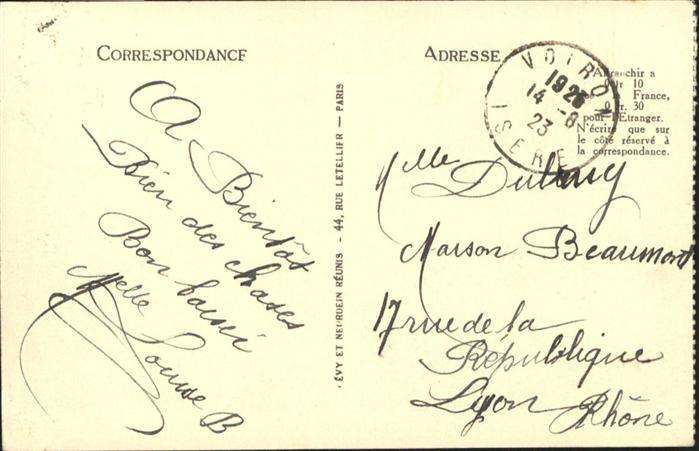 CORRESPONDANCE
A Bientôt
Bien des choses
Bon baisé
Melle
Louise B
ÉVY ET NEURDEIN RÉUNIS - 44, RUE LETELLIER — PARIS
ADRESSE
VOIRON
1923
14 -8
23
ISERE
Affranchir a
0 fr 10
France,
0 fr. 30
pour l'Etranger.
N'écrire que sur
le côté réservé à
la correspondance.
Mlle
Maison Beaumont
17 rue de la
République
Lyon Rhône